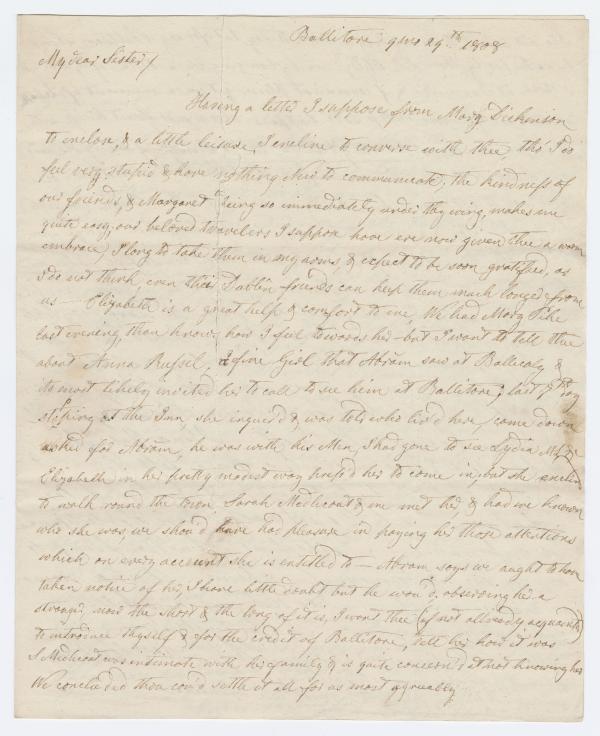 Ballitore 9mo 29th 1808
My dear Sister/
Having a letter I suppose from Mary Dickinson
to enclose, & a little leisure, I encline to converse with thee, tho' I do
feel very stupid & have nothing New to communicate, the kindness of
our friends, & Margaret being so immediately under thy wing, makes me
quite easy, our beloved travelers I suppose have ere now given thee a warm
embrace, I long to take them in my arms, & expect to be soon gratified, as
I do not think even their Dublin friends can keep them much longer from
us — Elizabeth is a great help & comfort to me. We had Mary Pike
last evening, thou knows how I feel towards her — but I want to tell thee
about Anna Russel, a fine Girl that Abram saw at Ballecaly &
its most likely invited her to call to see him at Ballitore; last 7th day
stoping at the Inn, she inquer'd & was told who liv'd here, came down
asked for Abram, he was with his Men, I had gone to see Lydia
Elizabeth in her pretty modest way press'd her to come in, but she enclin'd
to walk round the town, Sarah Medlicoat & me met her, & had we known
who she was, we should have had pleasure in paying her those attentions
which on every account she is entitled to — Abram says we aught to have
taken notice of her, I have little doubt but he wou'd, observing her a
stranger, now the short & the long of it is, I want thee (if not allready acquainted)
to introduce thyself & for the credit of Ballitore, tell her how it was
S Medlicoat was intimate with her family & is quite concern'd at not knowing her
We concluded thou cou'd settle it all for us most agreeably